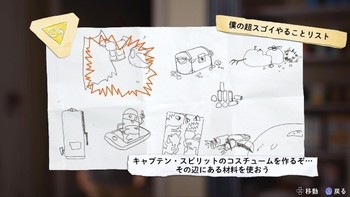 僕の超スゴイやることリスト
キャプテン・スピリットのコスチュームを作るぞ…
その辺にある材料を使おう
移動
戻る